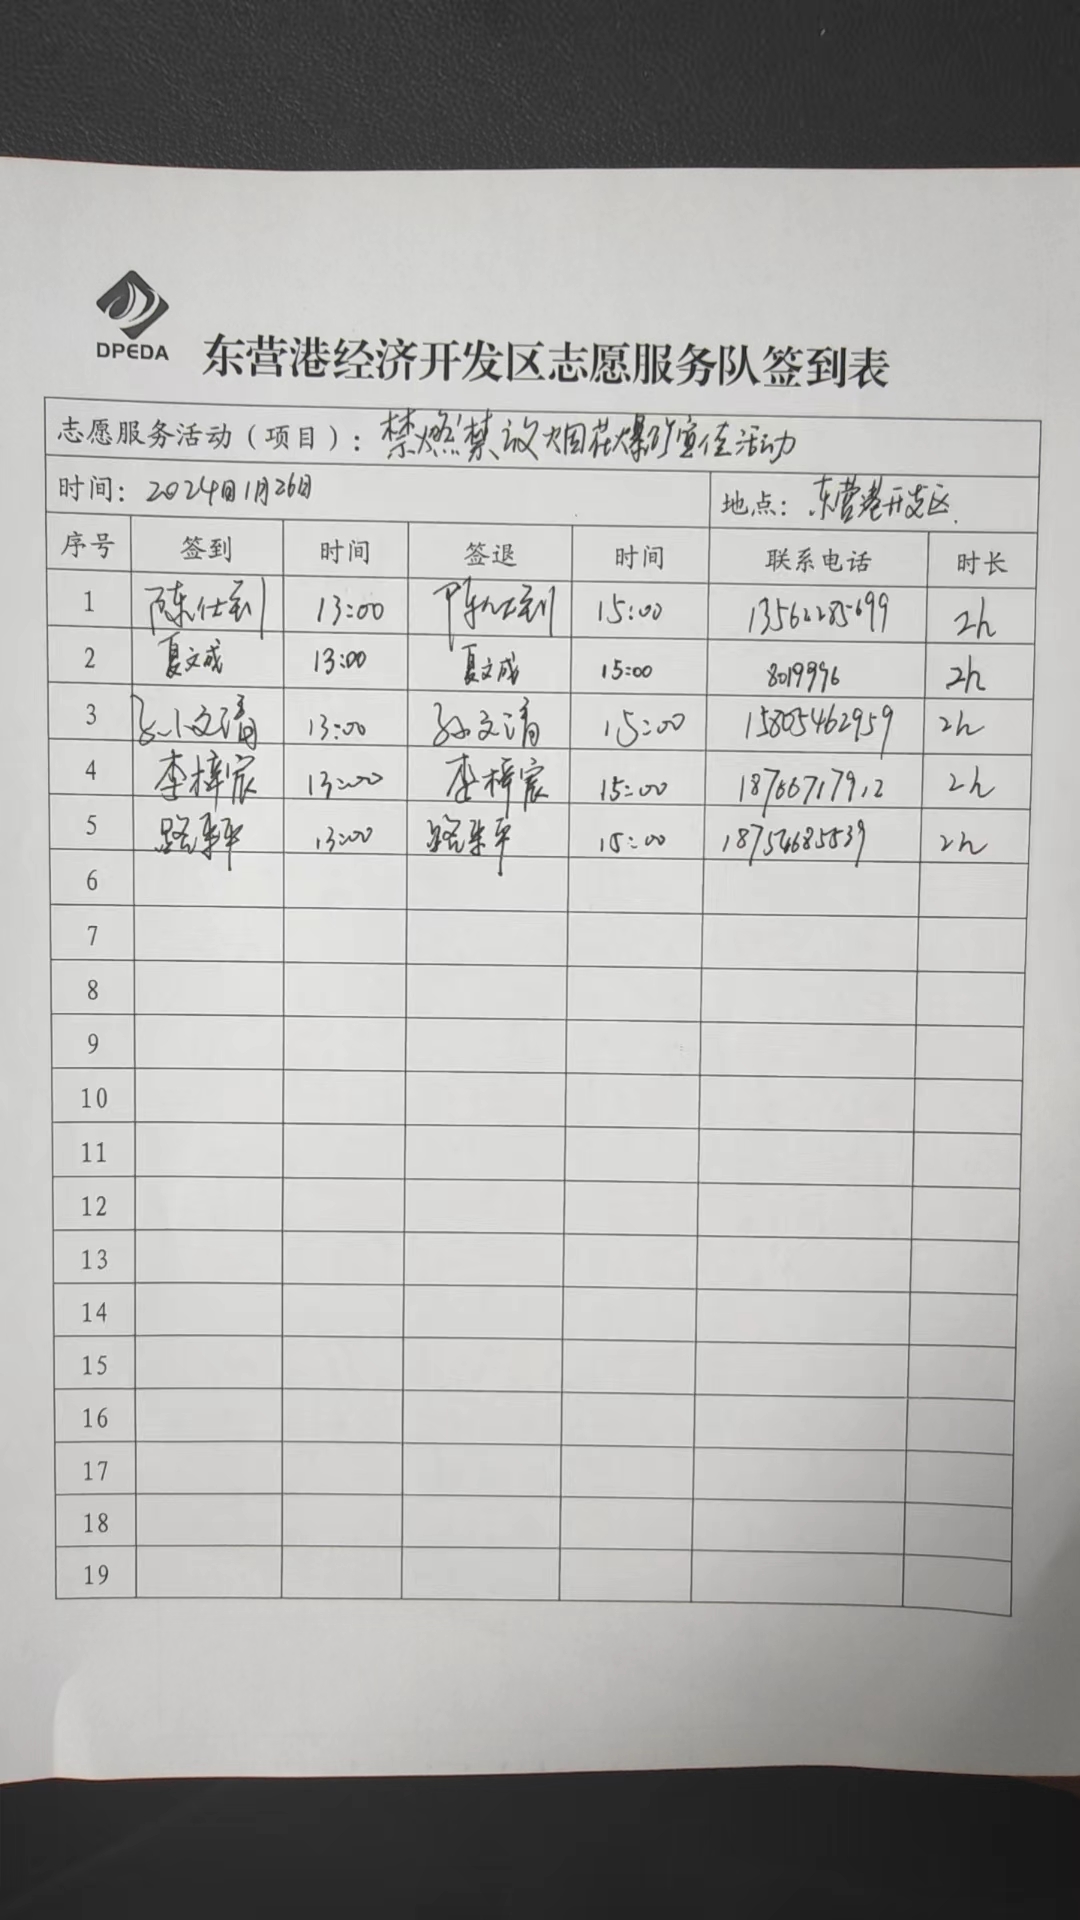 DPEDA
东营港经济开发区志愿服务队签到表
志愿服务活动（项目）：禁燃禁放烟花爆竹宣传活动
时间：2024年1月26日 地点：东营港开发区.
序号 签到 时间 签退 时间 联系电话 时长
1 陈仕到 13:00 陈仕到 15:00 13562285699 2h
2 夏文成 13:00 夏文成 15:00 8019996 2h
3 孙文清 13:00 孙文清 15:00 15805462959 2h
4 李梓宸 13:00 李梓宸 15:00 18766717912 2h
5 13:00 15:00 18754685539 2h
6
7
8
9
10
11
12
13
14
15
16
17
18
19